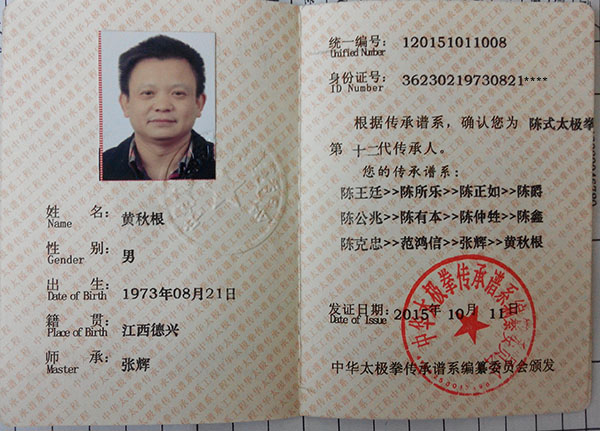 姓 名: 黄秋根
Name
性 别: 男
Gender
出 生: 1973年08月21日
Date of Birth
籍 贯: 江西德兴
Place of Birth
师 承: 张辉
Master
统一编号: 120151011008
Unified Number
身份证号: 36230219730821****
ID Number
根据传承谱系,确认您为 陈式太极拳
第 十二代传承人。
您的传承谱系:
陈王廷>>陈所乐>>陈正如>>陈爵
陈公兆>>陈有本>>陈仲甡>>陈鑫
陈克忠>>范鸿信>>张辉>>黄秋根
发证日期: 2015年 10月 11日
Date of Issue
中华太极拳传承谱系编纂委员会
中华太极拳传承谱系编纂委员会颁发